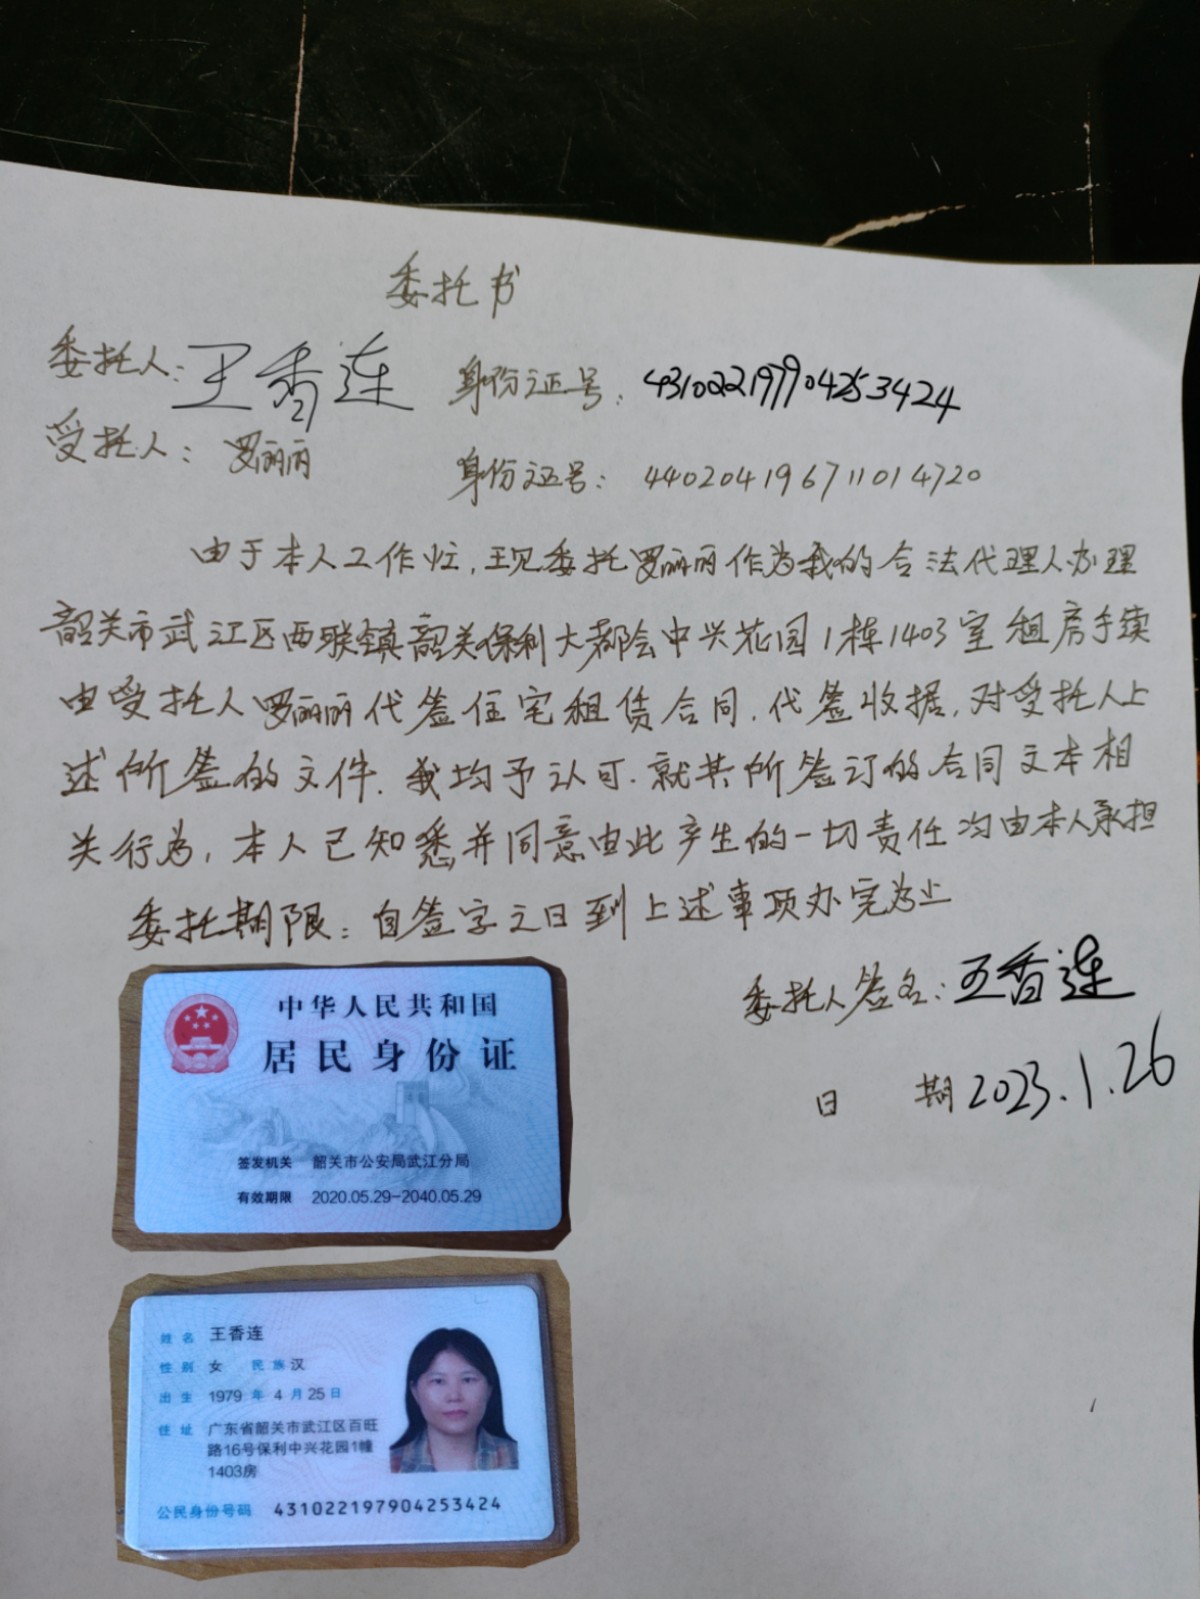 委托书
委托人：王香连 身份证号：431022197904253424
受托人：罗丽丽 身份证号：440204196711014720
由于本人工作忙，现委托罗丽丽作为我的合法代理人办理
韶关市武江区西联镇韶关保利大都会中兴花园1栋1403室租房手续
由受托人罗丽丽代签住宅租赁合同，代签收据，对受托人上
述所签的文件，我均予认可，就其所签订的合同文本相
关行为，本人已知悉并同意由此产生的一切责任均由本人承担
委托期限：自签字之日到上述事项办完为止
委托人签名：王香连
日 期 2023.1.26
中华人民共和国
居民身份证
签发机关 韶关市公安局武江分局
有效期限 2020.05.29-2040.05.29
姓名 王香连
性别 女 民族 汉
出生 1979 年 4 月 25 日
住址 广东省韶关市武江区百旺
路16号保利中兴花园1幢
1403房
公民身份号码 431022197904253424